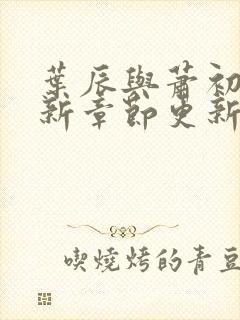 葉辰與蕭初
新章節更新
喫燒烤的青豆